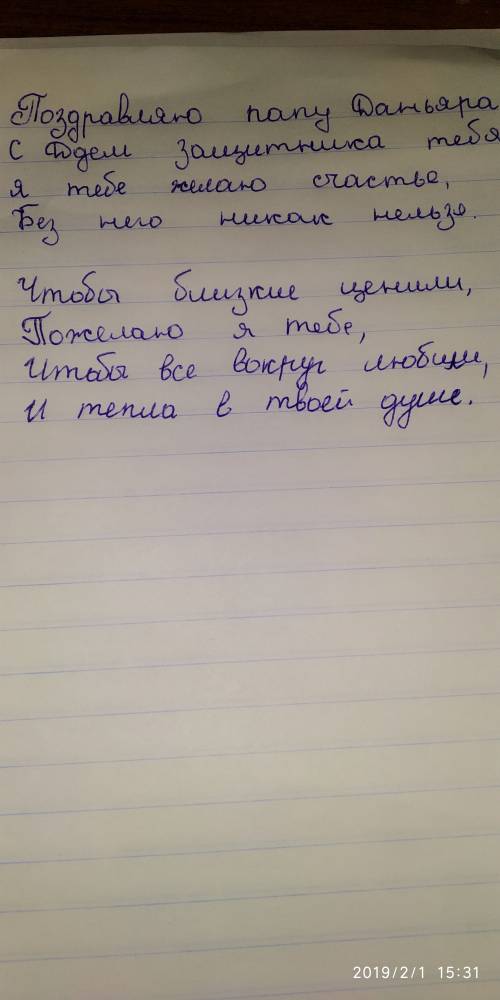 Поздравляю папу Даньяра
С Ддем защитника тебя
Я тебе желаю счастье,
Без него никак нельзя.
Чтобы близкие ценили,
Пожелаю я тебе,
Чтобы все вокруг любили,
И тепла в твоей душе.
2019/2/1 15:31